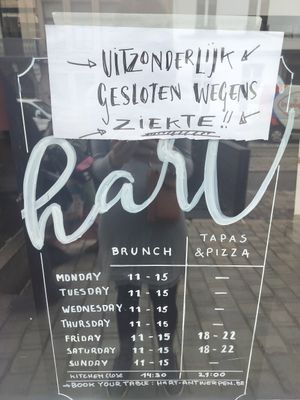 UITZONDERLIJK
GESLOTEN WEGENS
ZIEKTE!!
hart
BRUNCH TAPAS & PIZZA
MONDAY 11 - 15 —
TUESDAY 11 - 15 —
WEDNESDAY 11 - 15 —
THURSDAY 11 - 15 —
FRIDAY 11 - 15 18 - 22
SATURDAY 11 - 15 18 - 22
SUNDAY 11 - 15 —
KITCHEN CLOSE 14:30 21:00
BOOK YOUR TABLE: HART-ANTWERPEN.BE